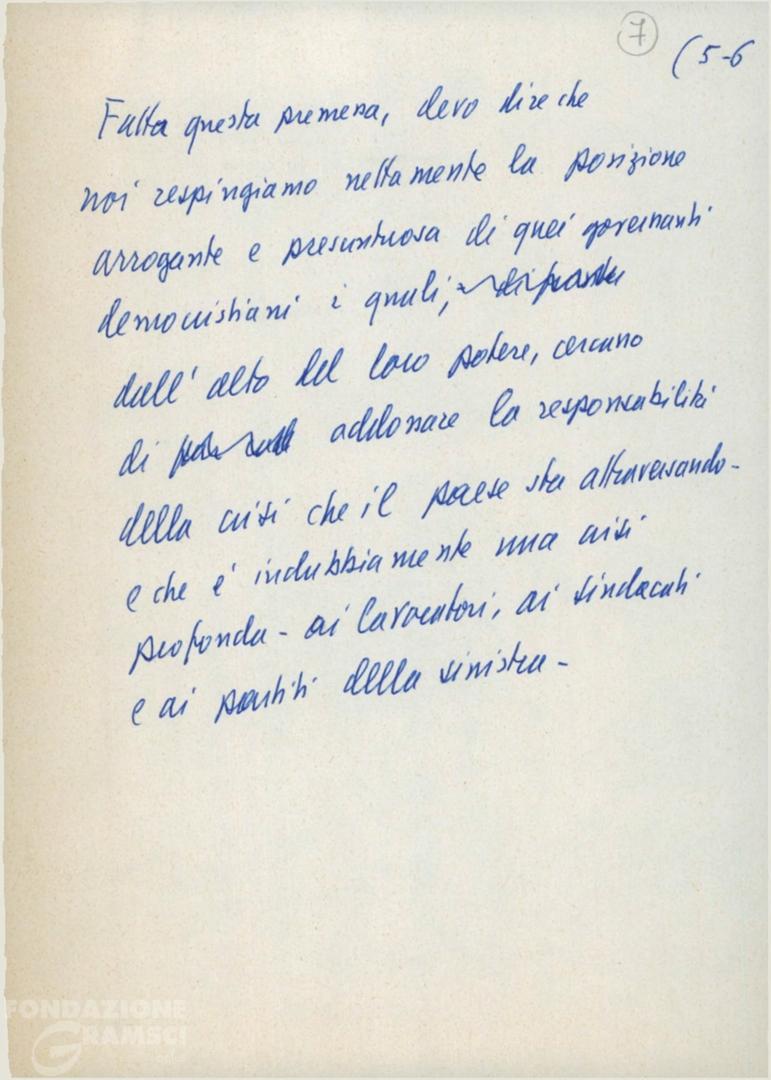 7
(5-6
Fatta questa premessa, devo dire che
noi respingiamo nettamente la posizione
arrogante e presuntuosa di quei governanti
democristiani i quali,
dall'alto del loro potere, cercano
di addossare la responsabilità
della crisi che il paese sta attraversando -
e che è indubbiamente una crisi
profonda - ai lavoratori, ai sindacati
e ai partiti della sinistra -
FONDAZIONE
GRAMSCI